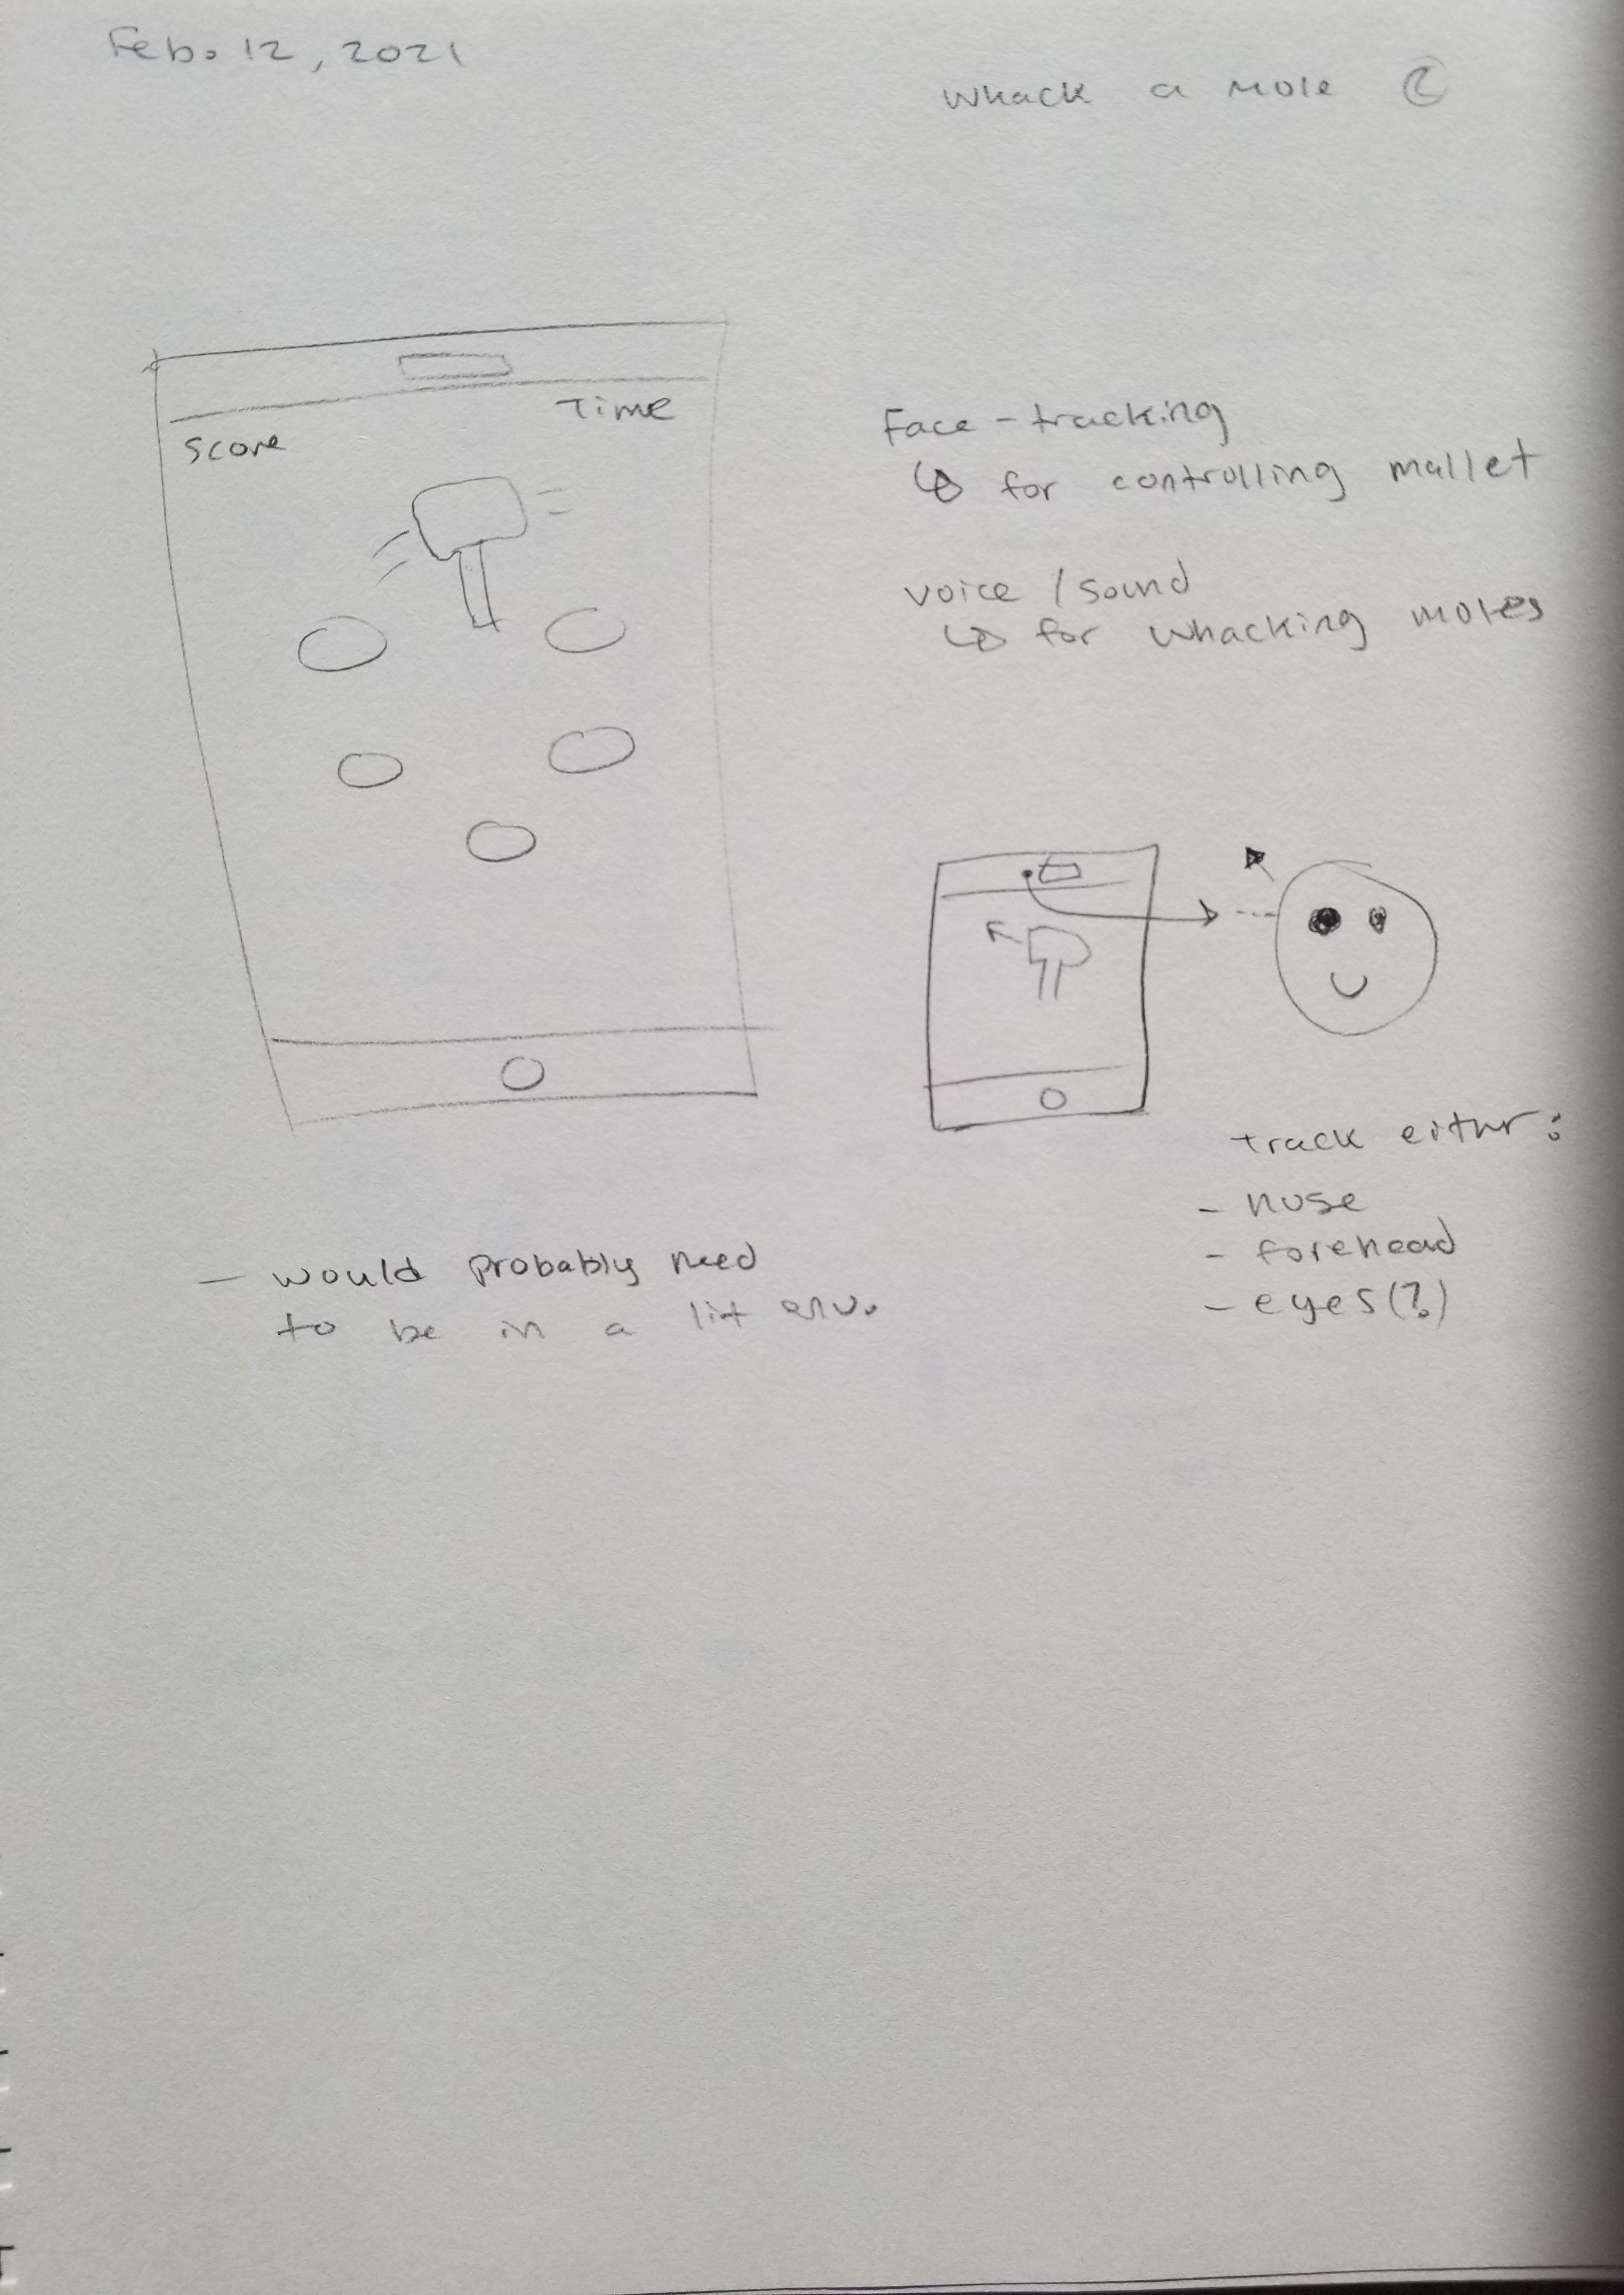 Feb. 12, 2021
Whack a Mole
Time
Score
Face-tracking
↳ for controlling mallet
Voice / Sound
↳ for whacking moles
track either:
- nose
- forehead
- eyes(?)
- would probably need
to be in a lit env.